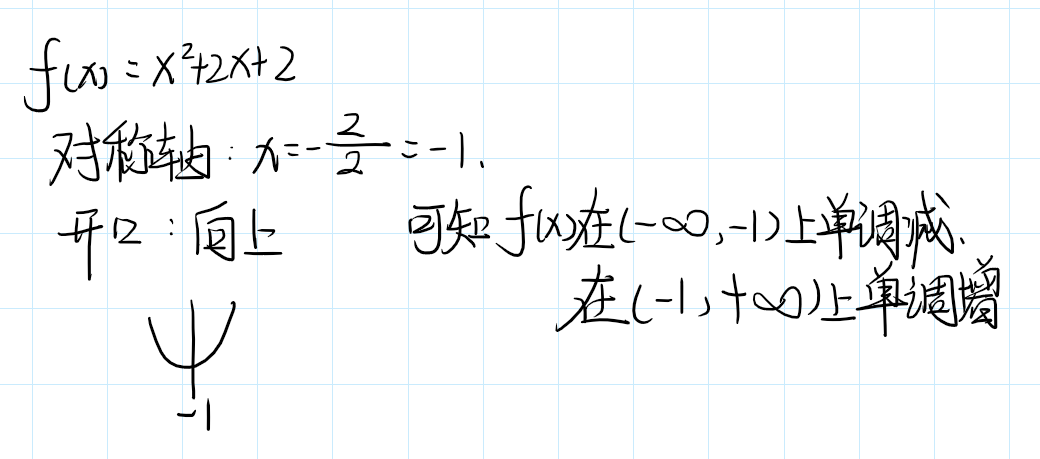 f(x) = x²+2x+2
对称轴: x=-2/2=-1.
开口:向上 可知 f(x)在(-∞,-1)上单调减、
在(-1,+∞)上单调增
-1